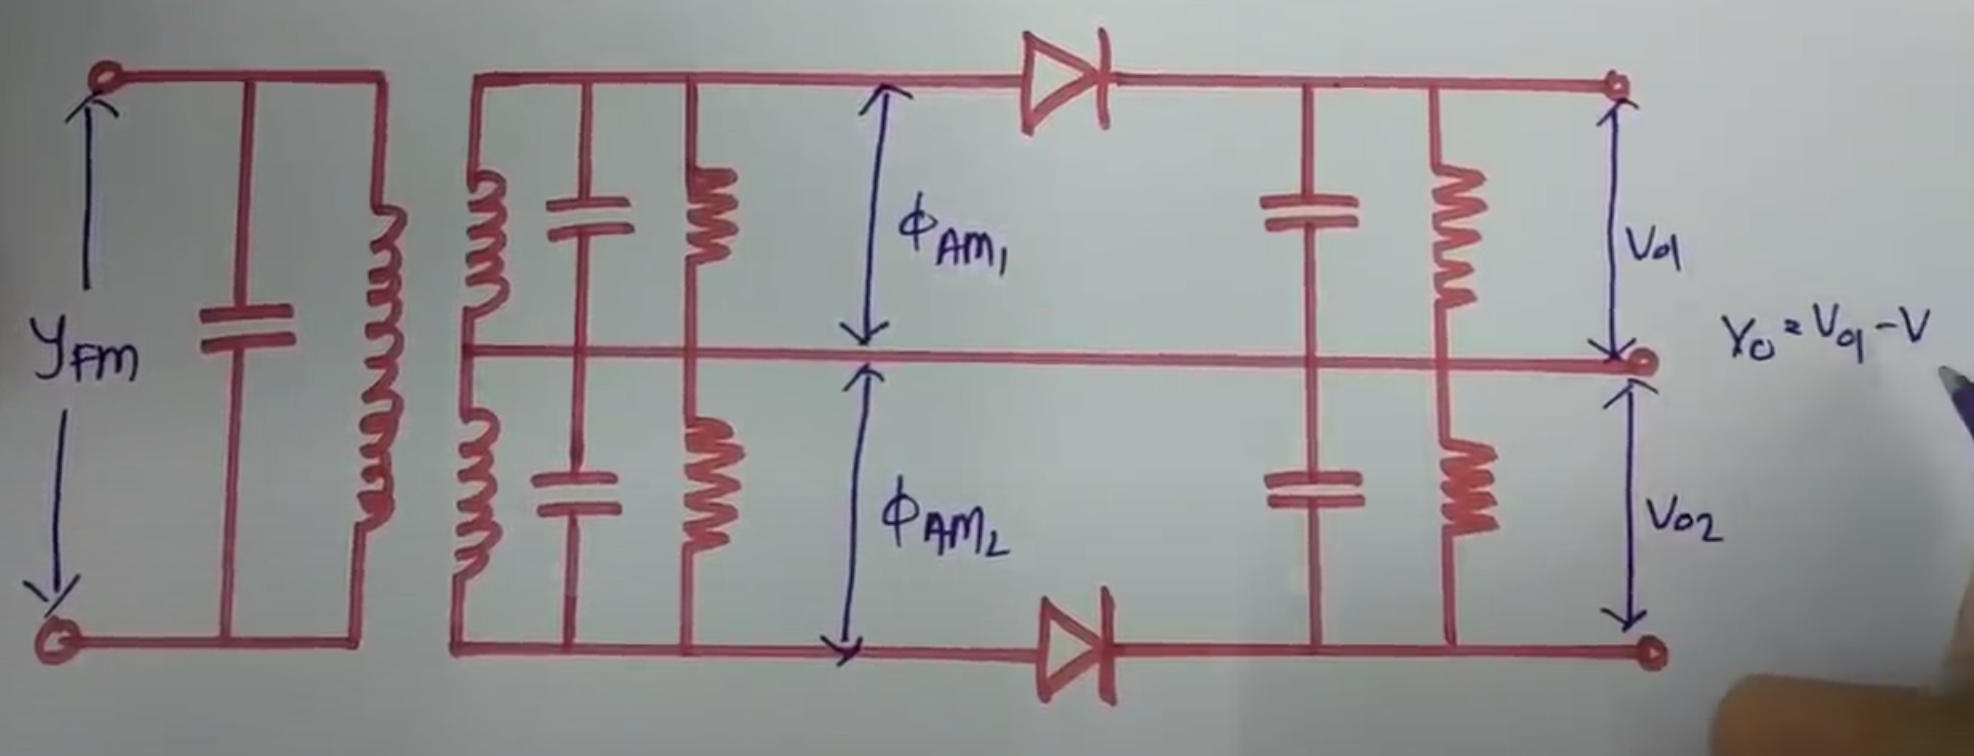 yFM
ΦAM1
ΦAM2
Vo1
Vo2
Yo = Vo1 - V